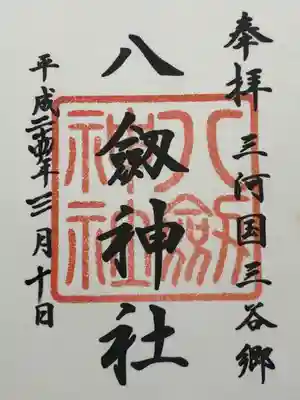 奉拝 三河国三谷郷
八劔神社
平成二十四年三月十日
八劔神社